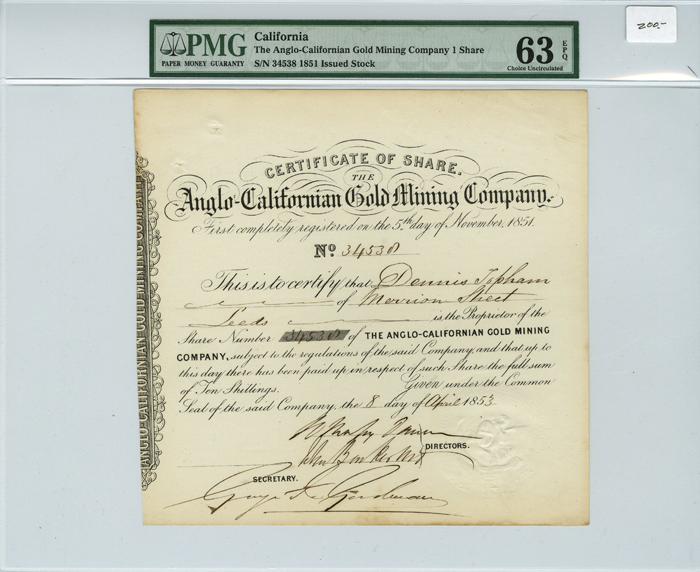 200.-
PMG
PAPER MONEY GUARANTY
California
The Anglo-Californian Gold Mining Company 1 Share
S/N 34538 1851 Issued Stock
63 EPQ
Choice Uncirculated
CERTIFICATE OF SHARE.
THE
Anglo-Californian Gold Mining Company.
First completely registered on the 5th day of November, 1851.
No 34538
This is to certify that Dennis Topham
of Merrion Street
Leeds is the Proprietor of the
Share Number 34538 of THE ANGLO-CALIFORNIAN GOLD MINING
COMPANY, subject to the regulations of the said Company, and that up to
this day there has been paid up in respect of such Share the full sum
of Ten Shillings. Given under the Common
Seal of the said Company, the 8 day of April 1853.
DIRECTORS.
SECRETARY.
ANGLO-CALIFORNIAN GOLD MINING COMPANY